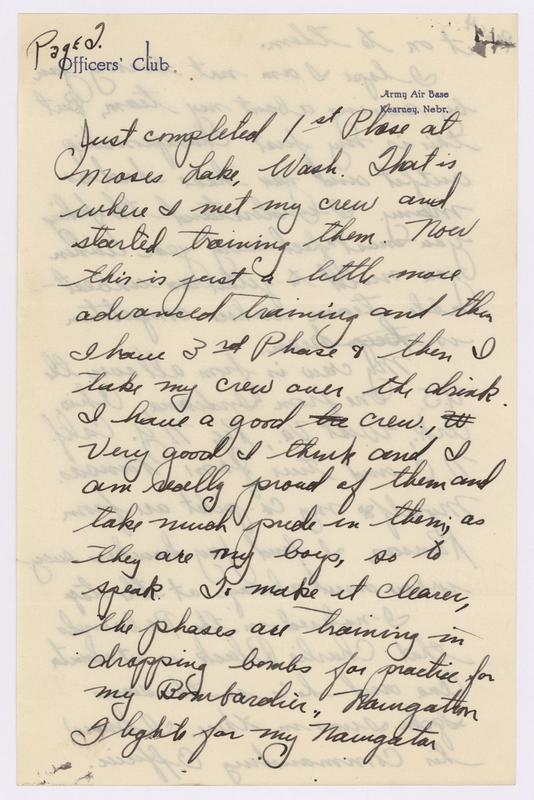 Page 2.
Officers' Club
Army Air Base
Kearney, Nebr.
Just completed 1st Phase at
Moses Lake, Wash. That is
where I met my crew and
started training them. Now
this is just a little more
advanced training and then
I have 3rd Phase & then I
take my crew over the drink.
I have a good crew,
very good I think and I
am really proud of them and
take much pride in them; as
they are my boys, so to
speak. To make it clearer,
the phases are training in
dropping bombs for practice for
my Bombardier, Navigation
Flights for my Navigator